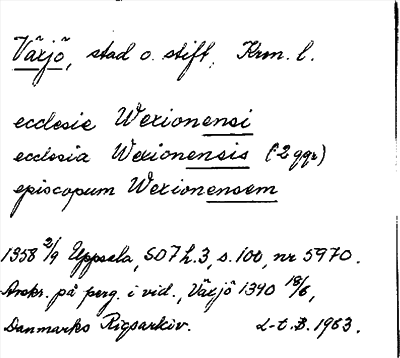 Växjö, stad o. stift, Krm. l.
ecclesie Wexionensi
ecclesia Wexionensis (2 ggr)
episcopum Wexionensem
1358 2/9 Uppsala, SD7 h.3, s.100, nr 5970.
Avskr. på perg. i vid., Växjö 1340 18/6,
Danmarks Rigsarkiv. L-t. B. 1963.